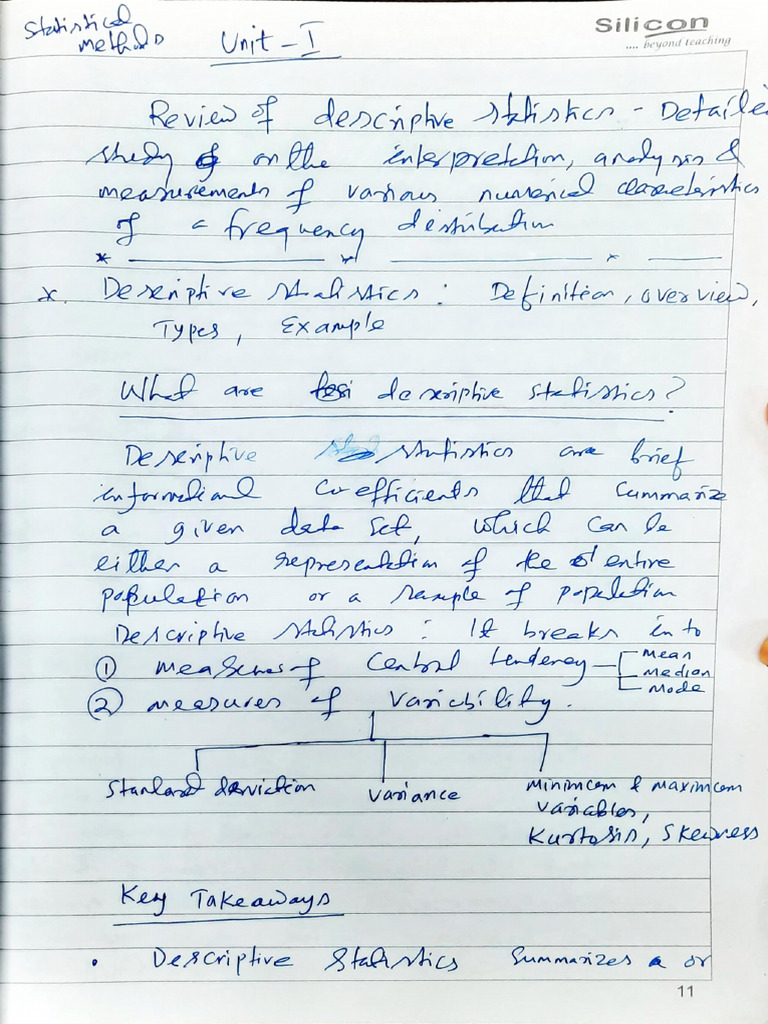 Statistical
methods
Unit - I
Silicon
.... beyond teaching
Review of descriptive statistics - Detailed
study on the interpretation, analysis &
measurements of various numerical characteristics
of a frequency distribution
* ———— * ———— * ————
*. Descriptive statistics: Definition, overview,
Types, Example
What are descriptive statistics?
Descriptive statistics are brief
informational coefficients that summarize
a given data set, which can be
either a representation of the entire
population or a sample of population
Descriptive statistics: It breaks into
① measures of Central tendency
Mean
Median
Mode
② measures of Variability.
Standard deviation
Variance
Minimum & maximum
variables,
Kurtosis, Skewness
Key Takeaways
• Descriptive Statistics Summarizes a or
11